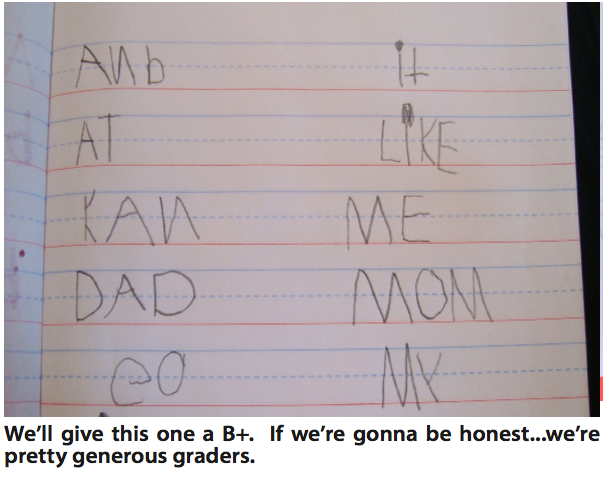 ANb it
AT LIKE
KAN ME
DAD MOM
GO MY
We'll give this one a B+. If we're gonna be honest...we're
pretty generous graders.